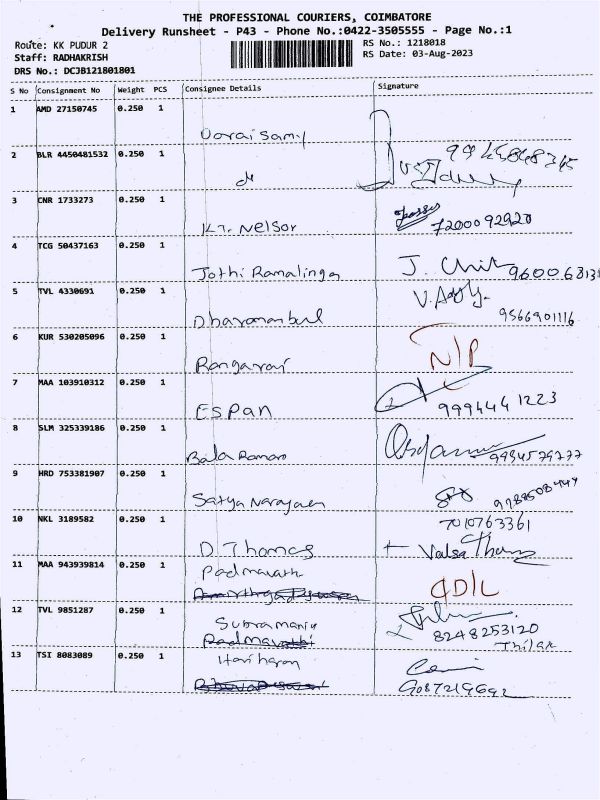 THE PROFESSIONAL COURIERS, COIMBATORE
Delivery Runsheet - P43 - Phone No.:0422-3505555 - Page No.:1
Route: KK PUDUR 2
RS No.: 1218018
Staff: RADHAKRISH
RS Date: 03-Aug-2023
DRS No.: DCJB121801801
S No Consignment No Weight PCS Consignee Details Signature
1 AMD 27150745 0.250 1
Doraisamy
2 BLR 4450481532 0.250 1
3 CNR 1733273 0.250 1
K.T. Nelson 7200092920
4 TCG 50437163 0.250 1
Jothi Ramalinga J. 960068138
5 TVL 4330691 0.250 1
9566901116
6 KUR 530205096 0.250 1
Rangaraj N/P
7 MAA 103910312 0.250 1
ESPAN 9994441223
8 SLM 325339186 0.250 1
Bala 9994579777
9 HRD 753381907 0.250 1
Satya Narayanan
10 NKL 3189582 0.250 1 7010763361
D Thomas Valsa Thomas
11 MAA 943939814 0.250 1
Padmavathi D/L
12 TVL 9851287 0.250 1
Subramani 8248253120
Padmavathi Thilak
13 TSI 8083089 0.250 1
Hariharan
9087219692